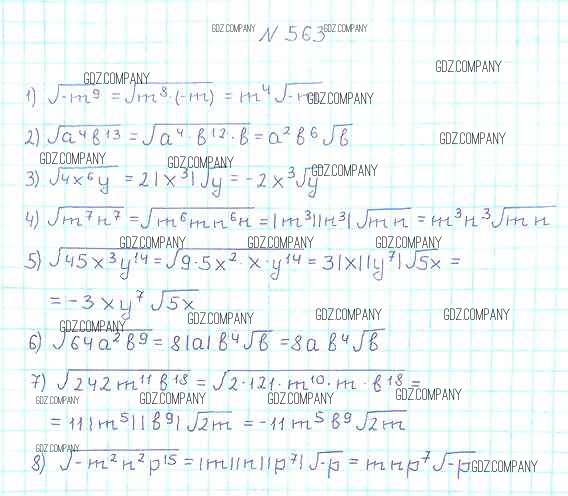 GDZ.COMPANY № 563 GDZ.COMPANY
GDZ.COMPANY GDZ.COMPANY
1) √-m⁹ = √m⁸·(-m) = m⁴√-m GDZ.COMPANY
2) √a⁴b¹³ = √a⁴·b¹²·b = a²b⁶√b GDZ.COMPANY
GDZ.COMPANY GDZ.COMPANY GDZ.COMPANY
3) √4x⁶y = 2|x³|√y = -2x³√y
4) √m⁷n⁷ = √m⁶mn⁶n = |m³||n³|√mn = m³n³√mn
GDZ.COMPANY GDZ.COMPANY GDZ.COMPANY
5) √45x³y¹⁴ = √9·5x²·x·y¹⁴ = 3|x||y⁷|√5x =
= -3xy⁷√5x
GDZ.COMPANY GDZ.COMPANY GDZ.COMPANY GDZ.COMPANY
6) √64a²b⁹ = 8|a|b⁴√b = 8ab⁴√b
7) √242m¹¹b¹⁸ = √2·121·m¹⁰·m·b¹⁸ =
GDZ.COMPANY GDZ.COMPANY GDZ.COMPANY GDZ.COMPANY
= 11|m⁵||b⁹|√2m = -11m⁵b⁹√2m
GDZ.COMPANY
8) √-m²n²p¹⁵ = |m||n||p⁷|√-p = mnp⁷√-p GDZ.COMPANY